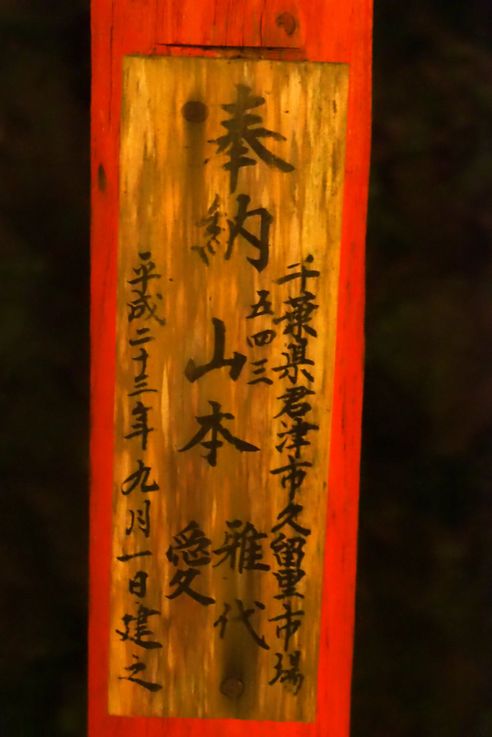 奉納
千葉県君津市久留里市場
五四三
山本 雅代
愛
平成二十三年九月一日建之